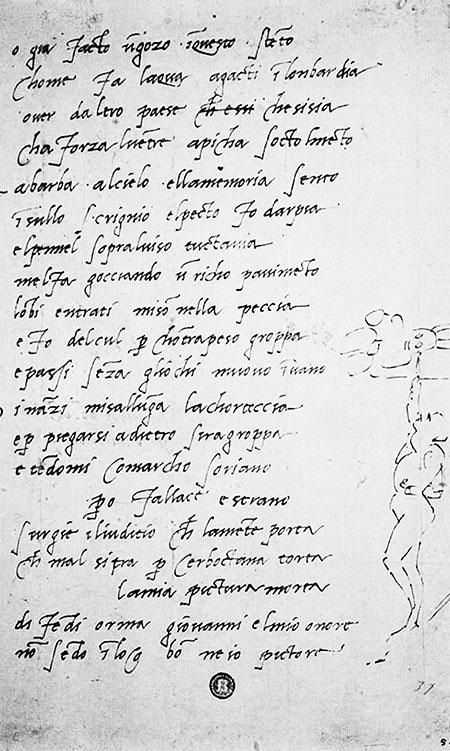 o gia facto ũgozo ĩquesto stẽto
chome fa laqua agacti ĩlonbardia
over daltro paese ch essi chesisia
cha forza luẽtre apicha socto lmẽto
abarba alcielo ellamẽmoria sento
ĩsullo scrignio elpecto fo darpia
elpennel sopraluiso tuctauia
melfa gocciando ũ richo pauimẽto
lõbi entrati misõ nella peccia
e fo delcul p chõtrapeso groppa
e passi sẽza gliochi muouo ĩuano
inãzi misallũga lachorteccia
e p piegarsi adietro siragroppa
e tẽdomi comarcho soriano
po fallace estrano
surgie iliuditio ch lamẽte porta
ch mal sitra p cerboctana torta
lamia pictura morta
difẽdi orma giouanni elmio onore
nõ sẽdo ĩ log bõ ne io pictore